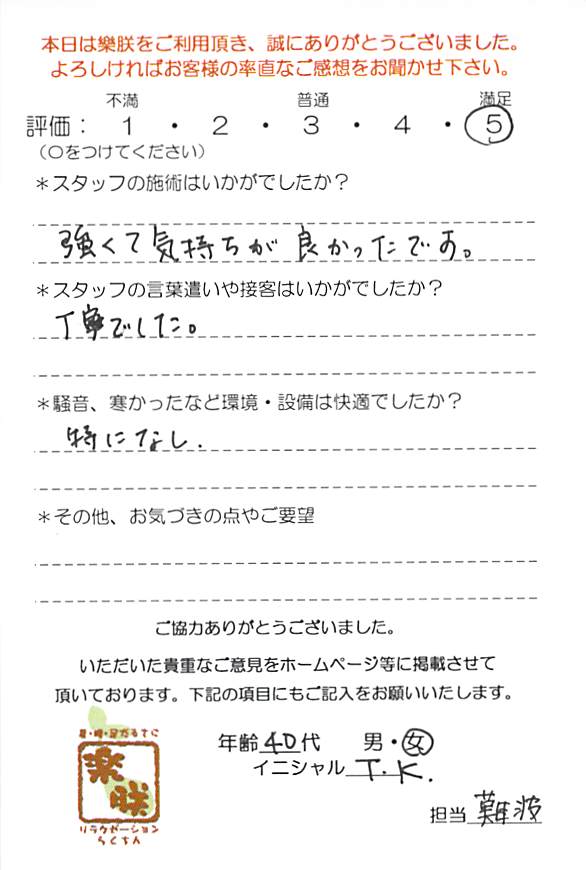 本日は樂朕をご利用頂き、誠にありがとうございました。
よろしければお客様の率直なご感想をお聞かせ下さい。
不満 普通 満足
評価： 1 ・ 2 ・ 3 ・ 4 ・ 5
（○をつけてください）
＊スタッフの施術はいかがでしたか？
強くて気持ちが良かったです。
＊スタッフの言葉遣いや接客はいかがでしたか？
丁寧でした。
＊騒音、寒かったなど環境・設備は快適でしたか？
特になし.
＊その他、お気づきの点やご要望
ご協力ありがとうございました。
いただいた貴重なご意見をホームページ等に掲載させて
頂いております。下記の項目にもご記入をお願いいたします。
年齢 40代 男・女
イニシャル T.K.
担当 難波
楽朕
リラクゼーション
らくちん